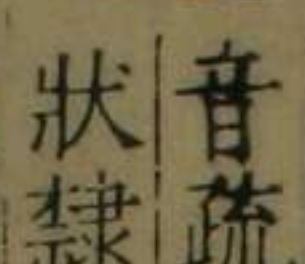 音疏
狀隸